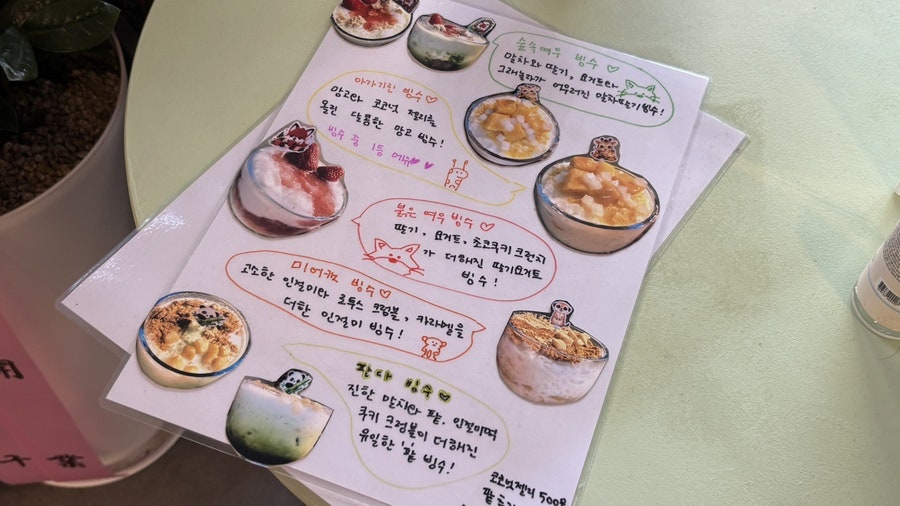 숲속여우 빙수♡
말차와 딸기, 요거트와
그래놀라가 어우러진 말차딸기빙수!
아기기린 빙수♡
망고와 코코넛 젤리를
올린 달콤한 망고 빙수!
빙수 중 1등 메뉴♥♥
붉은 여우 빙수♡
딸기, 요거트, 초코쿠키 크런치
가 더해진 딸기요거트
빙수!
미어캣 빙수♡
고소한 인절미와 로투스 크럼블, 카라멜을
더한 인절미 빙수!
판다 빙수♥
진한 말차와 팥, 인절미떡
쿠키 크럼블이 더해진
유일한 팥 빙수!
코코넛젤리 500원
用
千業